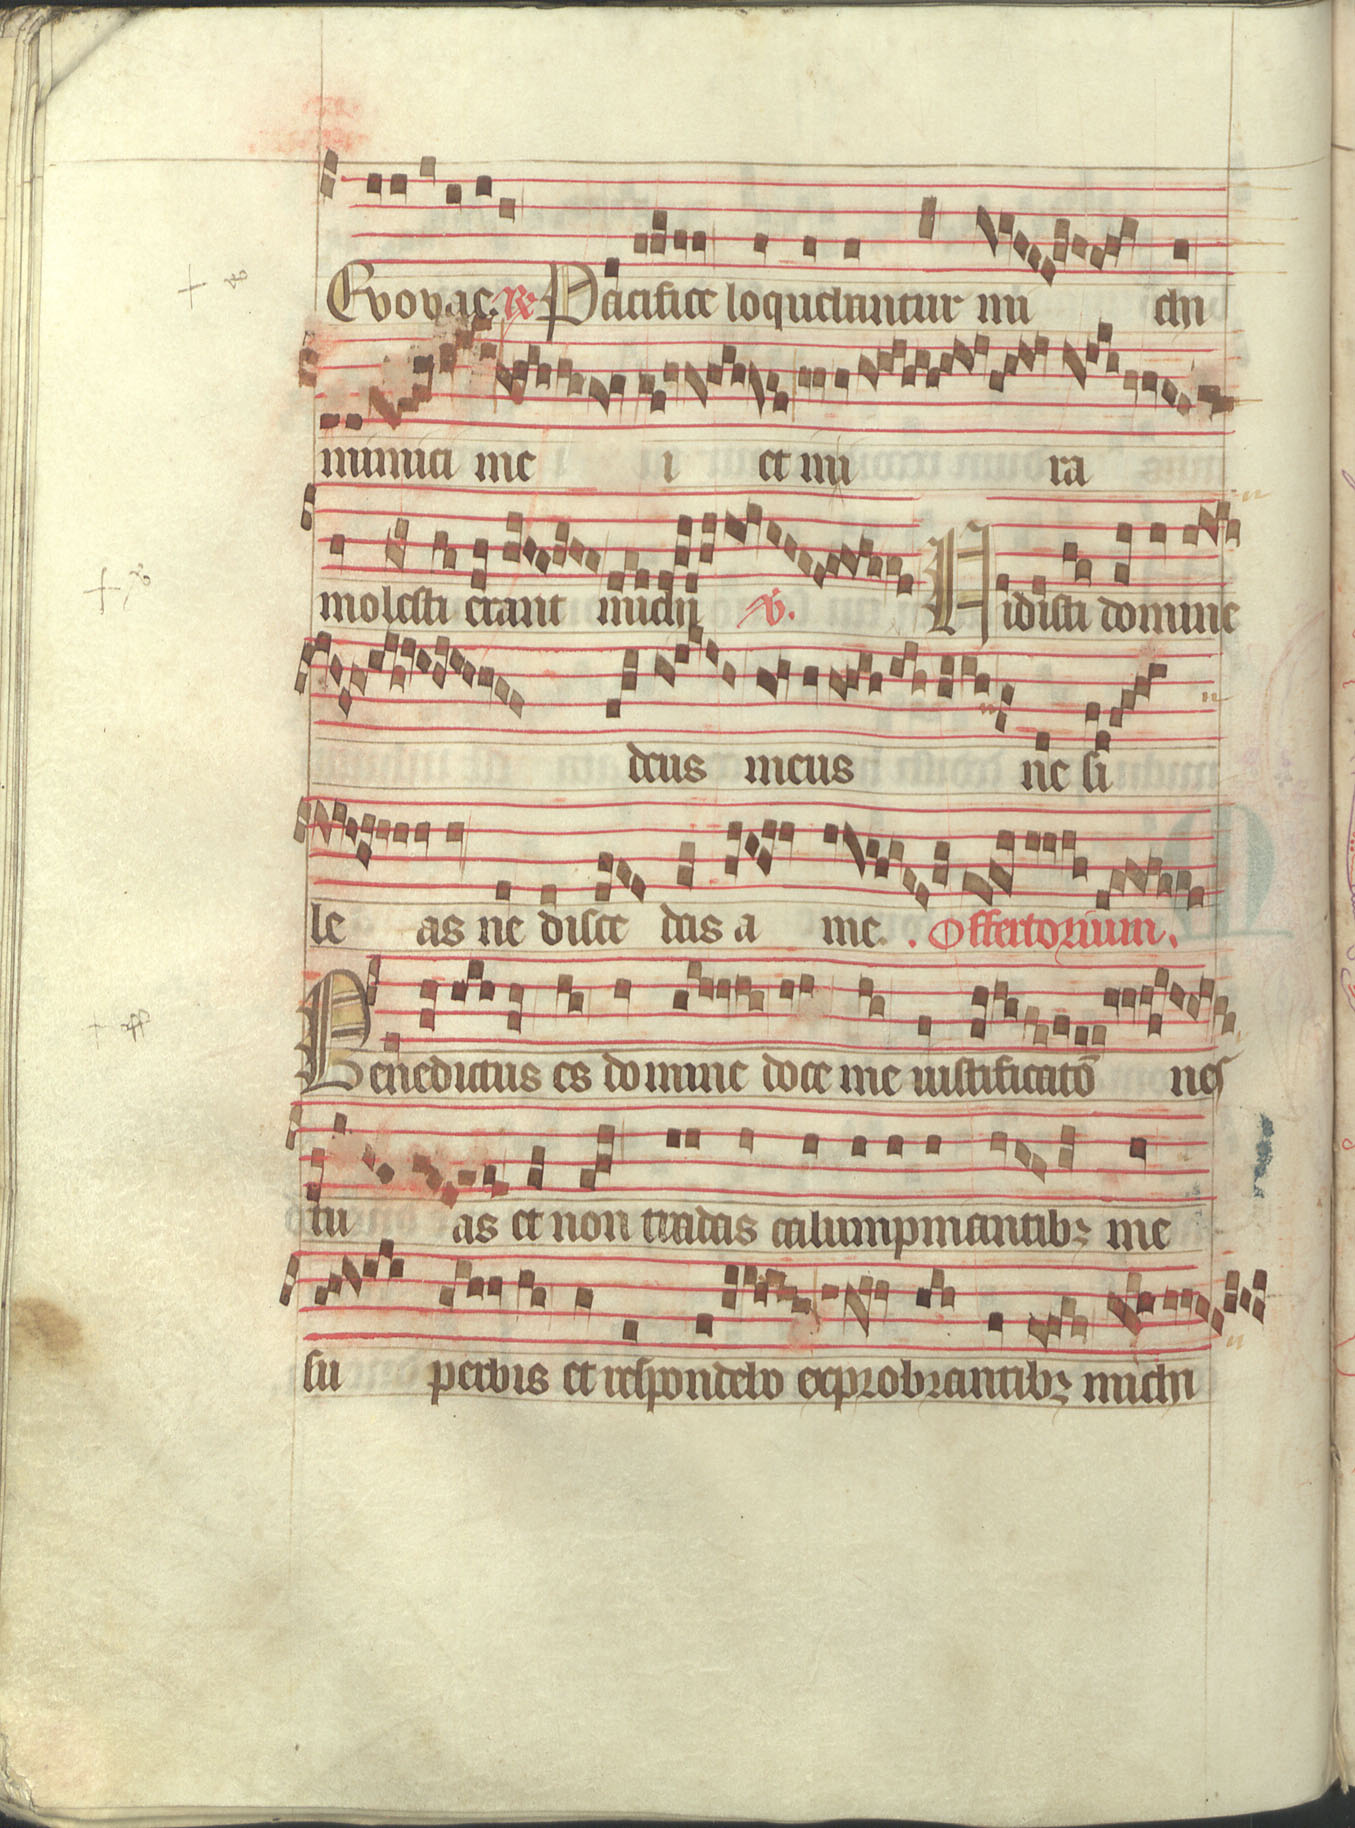 Evovae. R Pacifice loquebantur mi chi
inimici me i et in i ra
molesti erant michi V. Vidisti domine
deus meus ne si
le as ne disce das a me. Offertorium.
Benedictus es domine doce me iustificatō nes
tu as et non tradas calumpniantibꝫ me
su perbis et respondebo exprobrantibꝫ michi